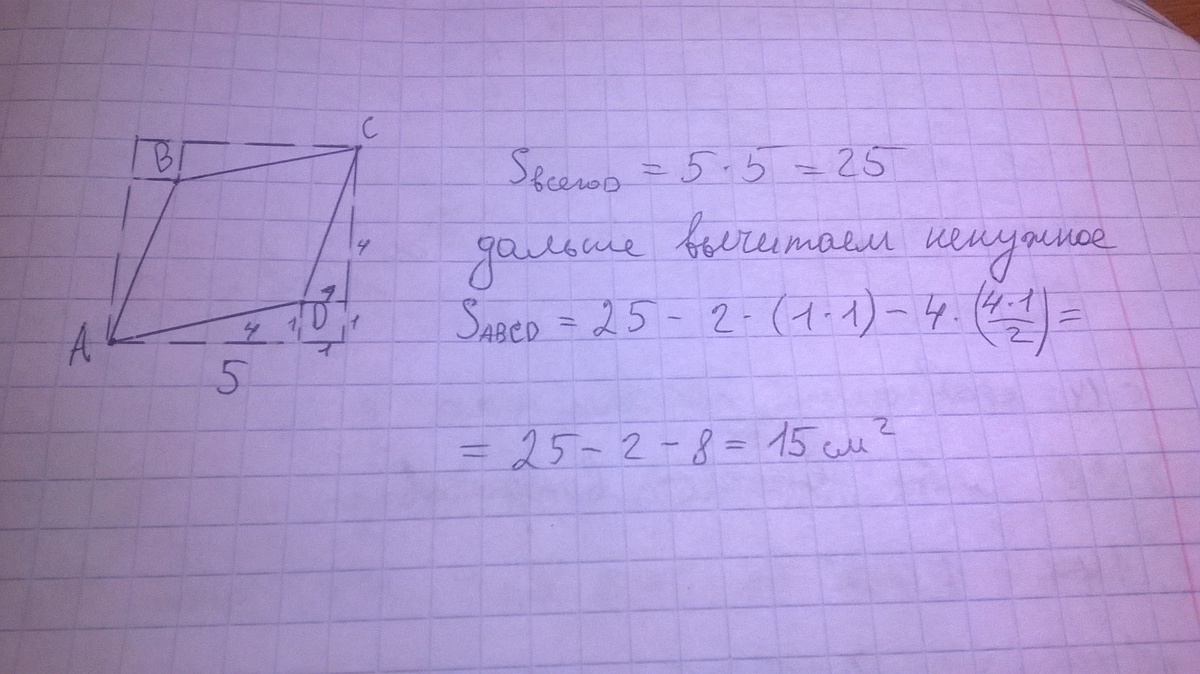 C
B
4
1
D
1
1
4
1
A
5
Sвсего = 5 · 5 = 25
дальше вычитаем ненужное
SABCD = 25 - 2 · (1·1) - 4 · (4·1/2) =
= 25 - 2 - 8 = 15 см²